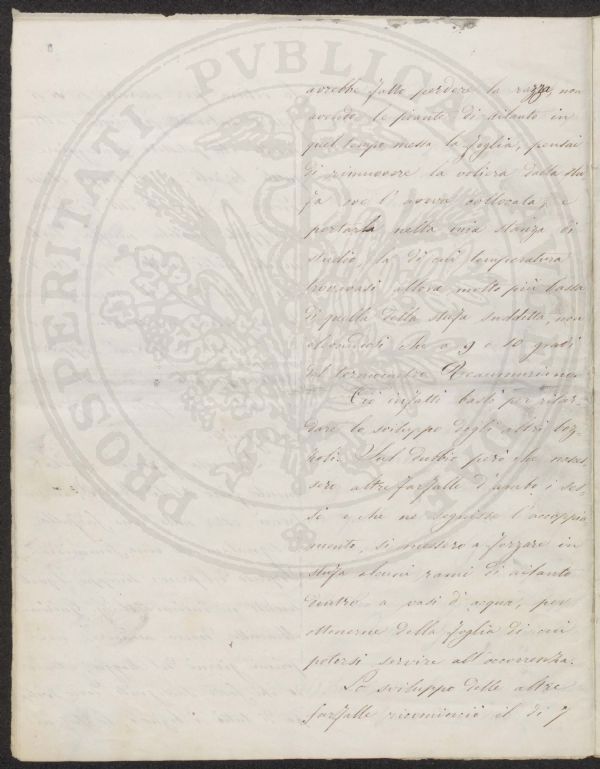 PROSPERITATI PVBLICAE
avrebbe fatto perdere la razza, non
avendo le piante di ailanto in
quel tempo messa la foglia, pensai
di rimuovere la voliera dalla stu-
fa ove l'aveva collocata, e
portarla nella mia stanza di
studio, la di cui temperatura
trovavasi allora molto più bassa
di quella della stufa suddetta, non
essendosi che a 9 o 10 gradi
del termometro Reaumuriano.
Ciò infatti bastò per ritar-
dare lo sviluppo degli altri boz-
zoli. Nel dubbio però che nasces-
sero altre farfalle d'ambo i ses-
si e che ne seguisse l'accoppia
mento, si messero a forzare in
stufa alcuni rami di ailanto
dentro a vasi d'acqua, per
ottenerne della foglia di cui
potersi servire all'occorrenza.
Lo sviluppo delle altre
farfalle ricominciò il dì 7